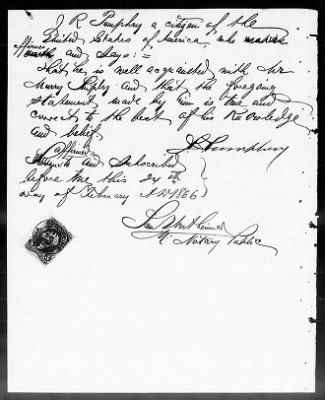 J R Pumphry a citizen of the
United States of America, who makes
affirms oath and says :=
That he is well acquainted with
Murry Shipley and that the foregoing
statement made by him is true and
correct to the best of his Knowledge
and belief
J R Pumphry
affirmed
Sworn to and Subscribed
before me this 24 th
day of February A D 1866
Notary Public